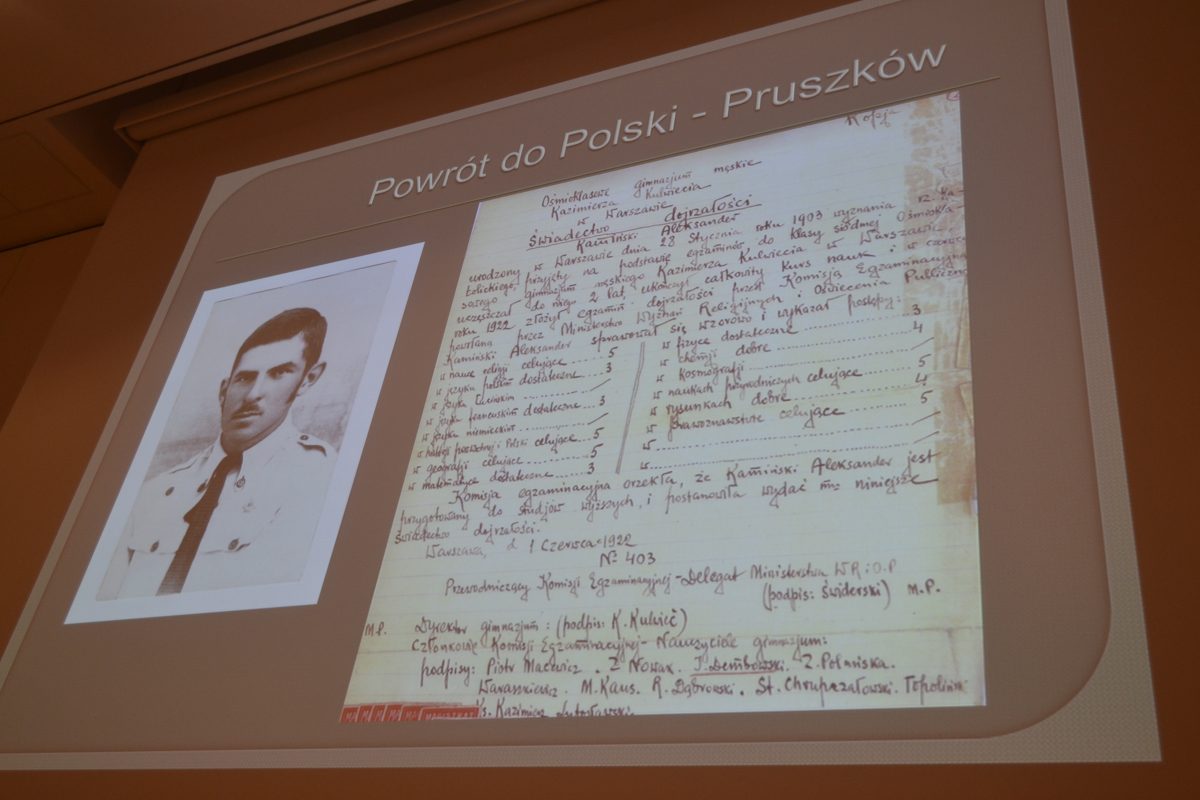 Powrót do Polski - Pruszków
Kopja
Ośmioklasowe gimnazjum męskie
Kazimierza Kulwiecia
w Warszawie
Świadectwo dojrzałości
Kamiński Aleksander
urodzony w Warszawie dnia 28 Stycznia roku 1903 wyznania rz. ka-
tolickiego, przyjęty na podstawie egzaminów do klasy siódmej Ośmiokla-
sowego gimnazjum męskiego Kazimierza Kulwiecia w Warszawie
uczęszczał do niego 2 lat, ukończył całkowity kurs nauk i w czerwcu
roku 1922 złożył egzamin dojrzałości przed Komisją Egzaminacyjną
powołaną przez Ministerstwo Wyznań Religijnych i Oświecenia Publiczne
Kamiński Aleksander sprawował się wzorowo i wykazał postępy:
w nauce religji celujące 5
w języku polskim dostateczne 3
w języku
w języku francuskim dostateczne 3
w języku niemieckim
w historji powszechnej i Polski celujące 5
w geografji celujące 5
w matematyce dostateczne 3
w fizyce dostateczne 3
w chemji dobre 4
w kosmografji
w naukach przyrodniczych celujące 5
w rysunkach dobre 4
w prawoznawstwie celujące 5
w
w
Komisja egzaminacyjna orzekła, że Kamiński Aleksander jest
przygotowany do studjów wyższych, i postanowiła wydać mu niniejsze
świadectwo dojrzałości.
Warszawa, d. 1 Czerwca 1922
№ 403
Przewodniczący Komisji Egzaminacyjnej - Delegat Ministerstwa W R i O P
(podpis: Świderski) M.P.
M.P. Dyrektor gimnazjum: (podpis: K. Kulwieć)
Członkowie Komisji Egzaminacyjnej - Nauczyciele gimnazjum:
podpisy: Piotr Macewicz. Z Nowak. J. Dembowski. Z. Polańska.
Waraszkiewicz. M. Kaus. R. Dąbrowski. St. Chrupczałowski.
Ks. Kazimierz Lutosławski.